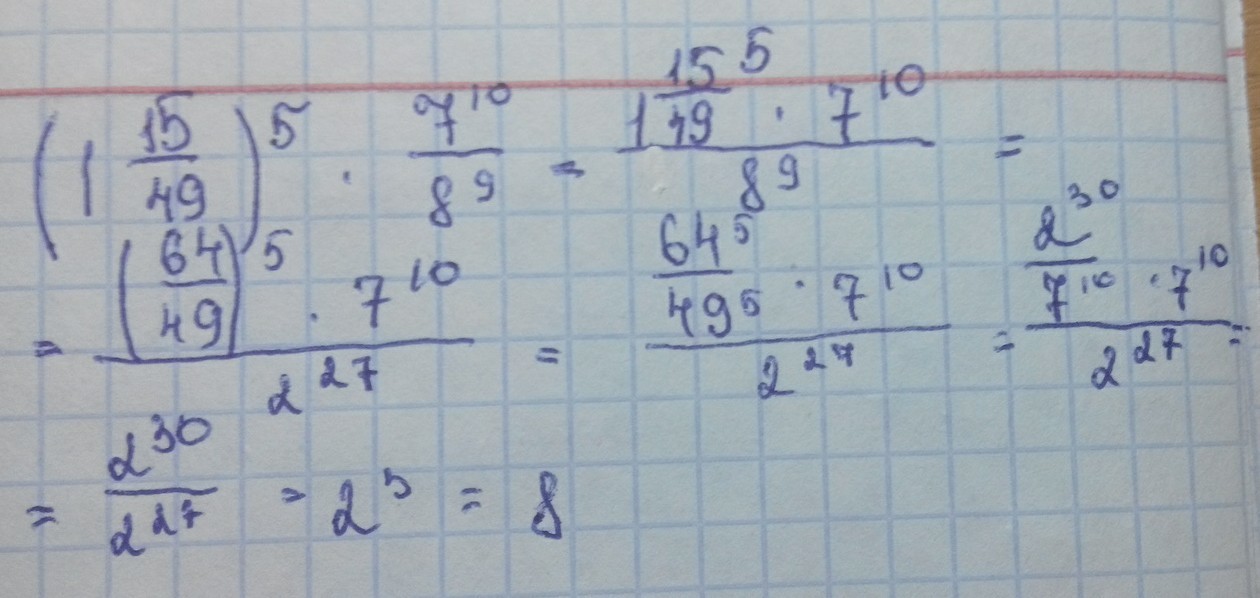 (1 15/49)^5 · 7^10/8^9 = (1 15/49^5 · 7^10)/8^9 =
= ((64/49)^5 · 7^10)/2^27 = (64^5/49^5 · 7^10)/2^27 = (2^30/7^10 · 7^10)/2^27 =
= 2^30/2^27 = 2^3 = 8